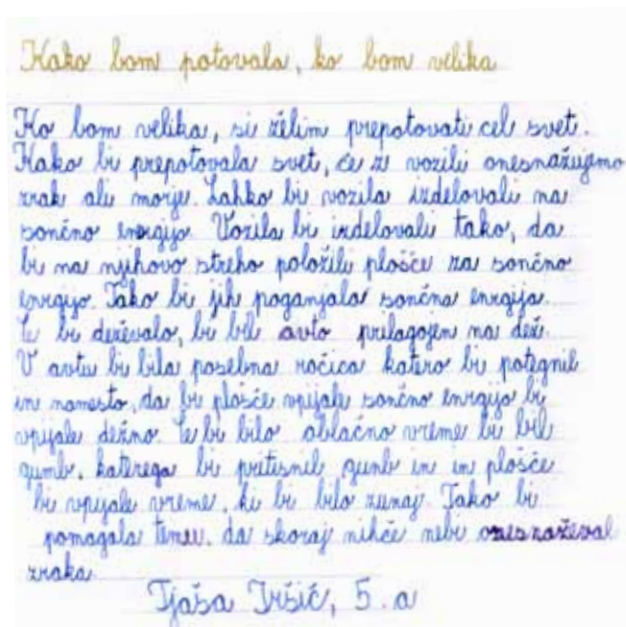 Kako bom potovala, ko bom velika
Ko bom velika, si želim prepotovati cel svet.
Kako bi prepotovala svet, če z vozili onesnažujemo
zrak ali morje. Lahko bi vozila izdelovali na
sončno energijo. Vozila bi izdelovali tako, da
bi na njihovo streho položili plošče za sončno
enrgijo. Tako bi jih poganjala sončna enrgija.
Če bi deževalo, bi bil avto prilagojen na dež.
V avtu bi bila posebna ročica katero bi potegnil
in namesto, da bi plošče vpijale sončno enrgijo bi
vpijale dežno. Če bi bilo oblačno vreme bi bil
gumb, katerega bi pritisnil gunb in in plošče
bi vpijale vreme, ki bi bilo zunaj. Tako bi
pomagala temu, da skoraj nihče nebi onesnaževal
zraka.
Tjaša Iršič, 5. a